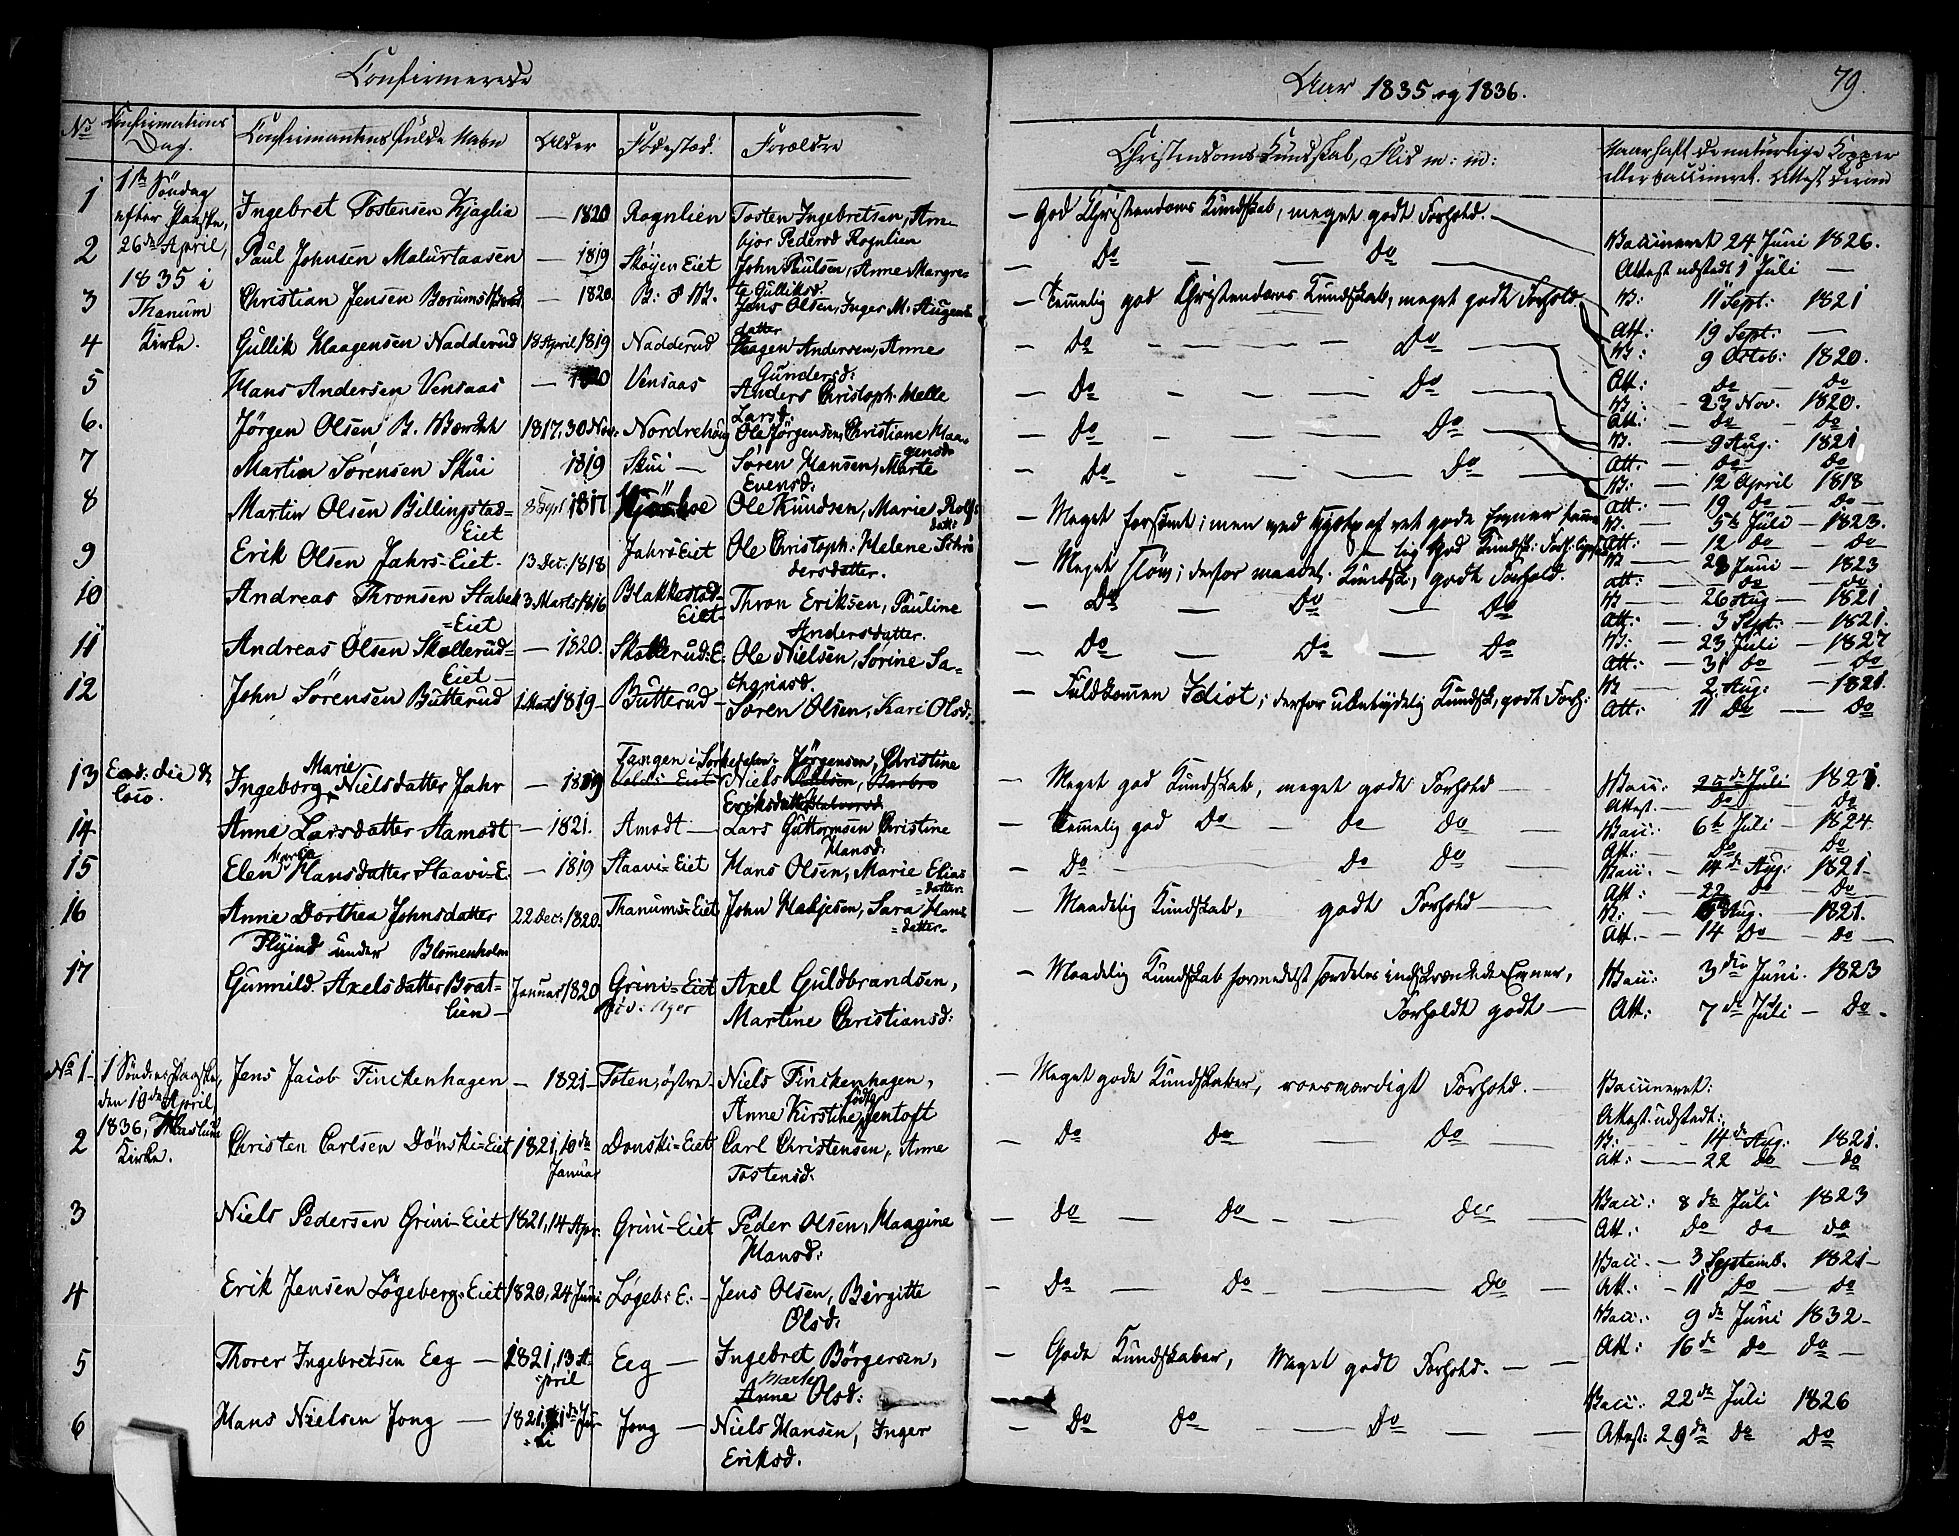 Confirmerede
Aar 1835 og 1836.
79.
No
Confirmations Dag.
Confirmantens fulde Navn
Alder
Födested.
Forældre
Christendoms Kundskab, Flid m: m:
Naar haft de naturlige Kopper
eller vaccineret. Attest derom
1ste Söndag
efter Paaske,
26de April,
1835 i
Thanum
Kirke.
1 Ingebret Tostensen Kjaglia — 1820 Rognlien Tosten Ingebretsen, Anne
bjor Pedersd Rognlien
— God Christendoms Kundskab, meget godt Forhold. —
Vaccineret 24 Juni 1826.
Attest udstedt 1 Juli —
2 Paul Johnsen Malurtaasen — 1819 Skøyen Eiet John Paulsen, Anne Margre-
te Gulliksd.
— Do — — Do —
V: 11 Sept: 1821
Att: 19 Sept: —
3 Christian Jensen Bærums — 1820. B: & V. Jens Olsen, Inger M. Haugens
datter
— Temelig god Christendoms Kundskab, meget godt Forhold.
V: 9 Octob: 1820.
Att: Do Do
4 Gullik Haagensen Nadderud 18 April 1819 Nadderud Haagen Andersen, Anne
Gundersd:
— Do — — — — Do —
V: — 23 Nov. 1820.
Att: — Do — Do
5 Hans Andersen Vensaas — 1820 Vensaas Anders Christoph. Helle
Larsd:
— Do — — — Do —
V. — 9 Aug: 1821
Att: — Do Do
6. Jørgen Olsen B. Værket 1817. 30 Nov: Nordrehoug Ole Jørgensen, Christiane Haa-
gensd:
— Do — — — Do
V: — 12 April 1818
Att: — 19 Do — Do —
7 Martin Sørensen Skui 1819 Skui — Søren Hansen, Marte
Evensd:
— Do — — — Do
V. — 5te Juli — 1823.
Att: — 12 Do — Do
8 Martin Olsen Billingstad=
Eiet
8 Sept 1817 Ole Knudsen, Marie Rolfs
datt:
— Meget forsømt; men ved af ret gode Evner
lig God Kundsk: Forh:
V — 28 Juni — 1823
Att: — Do — Do
9 Erik Olsen Jahrs-Eiet. 13 Dec: 1818 Jahrs Eiet Ole Christoph: Helene Schrö
dersdatter.
— Meget sløv; derfor maadel. Kundsk, godt Forhold.
V — 26 Aug — 1821
Att: — 3 Sept: — 1821.
10 Andreas Thronsen Stabek
=Eiet
3 Marts 1816 Blakkestad-
Eiet
Thron Eriksen, Pauline
Andersdatter.
— Do — Do — Do
V: — 23 Juli — 1827
Att: — 31 Do — Do
11 Andreas Olsen Skollerud=
Eiet —
— 1820. Skollerud: E: Ole Nielsen, Sørine Sa-
chariasd:
— Do — Do — Do
V — 2 Aug: — 1821.
Att: — 11 Do — Do
12 John Sörensen Butterud 1819 — Butterud — Sören Olsen, Kari Olsd:
— Fuldkomen Idiot; derfor ubetydelig Kundsk, godt Forh:
13 Eod: die &
loco.
Marie
Ingeborg Nielsdatter Jahr — 1819 Tangen i Sörkedalen. Jörgensen, Christine
Niels
Eriksdatt
— Meget god Kundskab, meget godt Forhold —
Vacc: 20de Juli 1821.
Attest. — Do — Do
14 Anne Larsdatter Aamodt — 1821. Amodt — Lars Guttormsen Christine
Hansd:
— Temelig god Do — do Do —
Vacc: 6te Juli — 1824.
Att: — Do — Do
15 Elen Hansdatter Staavi-E. — 1819 Staavi-Eiet Hans Olsen, Marie Elias
=datter.
— Do — — do Do —
Vacc: — 14de Aug: 1821—
Att: — 22 Do — Do —
16 Anne Dorthea Johnsdatter
Flyind under Blomenholm
22 Dec: 1820. Thanums Eiet John Mathjesen, Sara Hans
=datter.
— Maadelig Kundskab, godt Forhold —
V: — Aug. — 1821.
Att. — 14 Do — Do —
17 Gunnild Axelsdatter Brat-
lien —
Januar 1820 Grini-Eiet
Ager
Axel Guldbrandsen,
Martine Christiansd:
— Maadelig Kundskab formedelst særdeles indskrænkede Evner,
Forholdt godt —
Vacc: 3die Juni. 1823
Att: 7de Juli — Do —
No 1 — 1 Sönd: e: Paaske,
den 10de April,
1836, i Haslum
Kirke.
Jens Jacob Finckenhagen — 1821 — Toten, östre — Niels Finckenhagen,
Anne Kirstine født Jentoft
— Meget gode Kundskaber, roesværdigt Forhold. —
Vaccineret:
Attest: udstedt:
2 Christen Carlsen Dønski=Eiet 1821, 10de
Januar
Donski=Eiet Carl Christensen, Anne
Tostensd:
— Do Do — — Do —
V: — 14de Aug: 1821.
Att: — 22 Do — Do
3 Niels Pedersen Grini-Eiet 1821, 14 Apr: Grini-Eiet Peder Olsen, Maagine
Hansd:
— Do — Do — — Do —
Vacc: 8de Juli 1823
Att: Do Do Do
4 Erik Jensen Løgeberg: Eiet 1820, 24 Juni Løgeb: E: — Jens Olsen, Birgitte
Olsd:
— Do — Do — — Do —
Vacc. — 3 Septemb. 1821—
Att: — 11 Do — Do
5 Thorer Ingebretsen Eeg — 1821, 13 A-
pril
Eeg — Ingebret Börgersen,
Marte
Anne Olsd:
— Gode Kundskaber, Meget godt Forhold. — —
Vacc: 9de Juni 1832—
Att: 16de Do Do —
6 Hans Nielsen Jong — 1821, 21de Ju-
ni
Jong — Niels Hansen, Inger
Eriksd.
— Do Do — — Do — —
Vacc: 22de Juli 1826
Attest: 29de Do Do